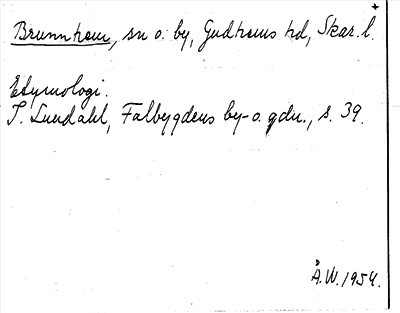 Brunnhem, sn o. by, Gudhems hd, Skar. l.
Etymologi.
I. Lundahl, Falbygdens by- o. gdn., s. 39.
Å.W. 1954.